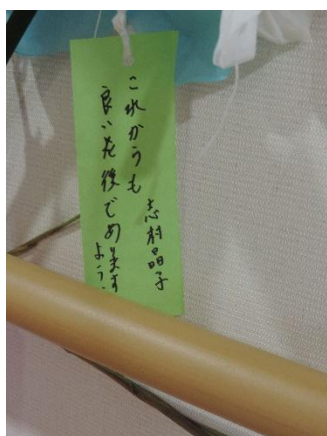 これからも
良い老後であります
よう
志村晶子